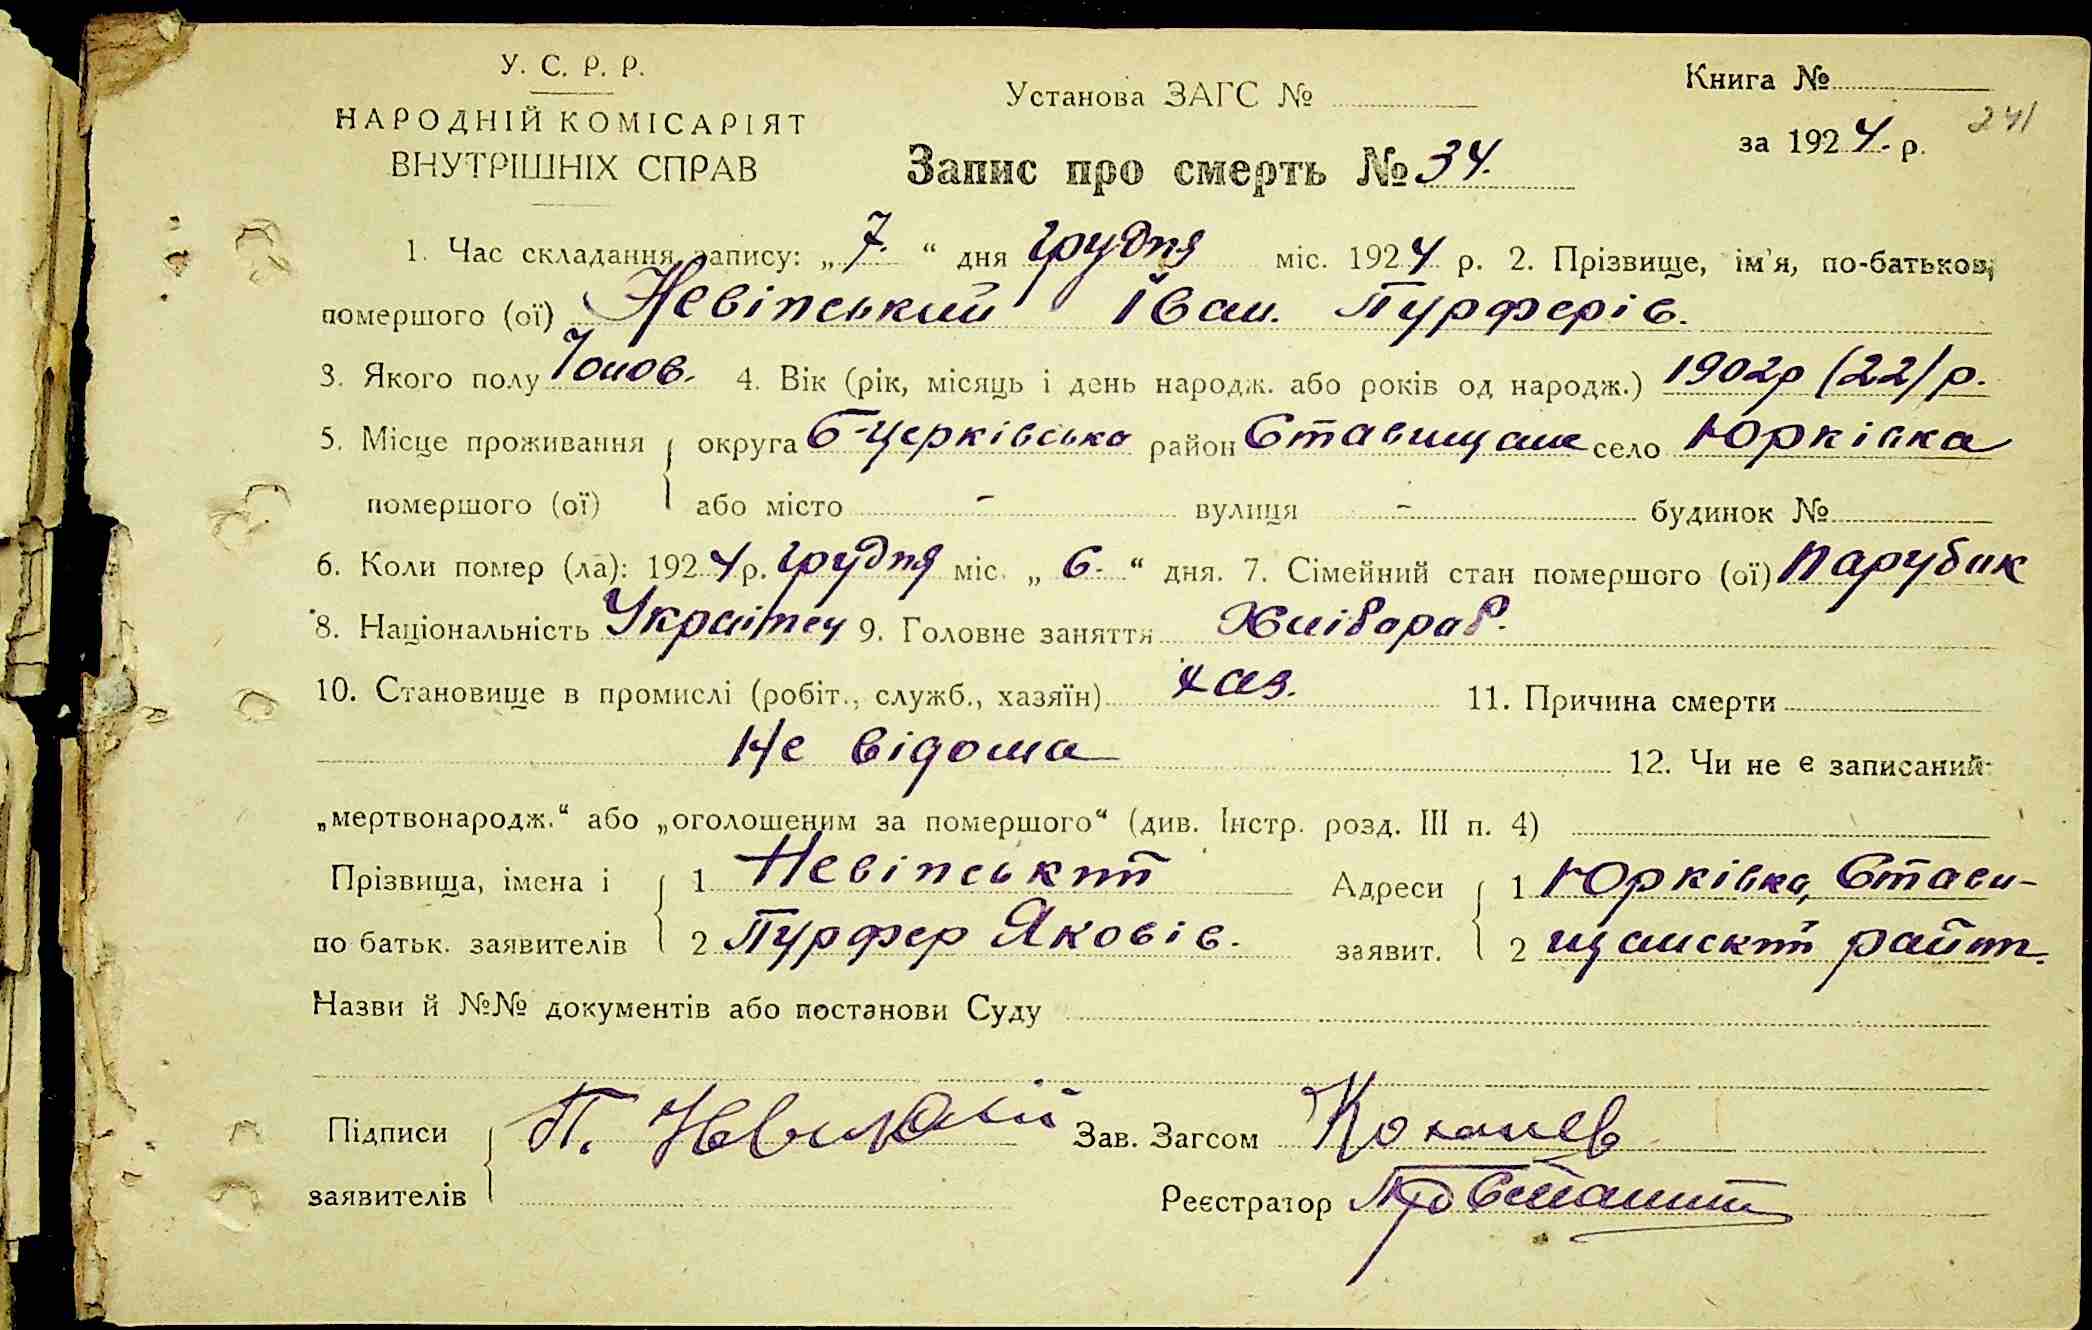 У. С. Р. Р.
НАРОДНІЙ КОМІСАРІЯТ
ВНУТРІШНІХ СПРАВ
Установа ЗАГС №
Запис про смерть № 34.
Книга №
241
за 1924. р.
1. Час складання запису: „7.“ дня грудня міс. 1924 р. 2. Прізвище, ім'я, по-батькові
помершого (ої) Невінський Іван Пурферів.
3. Якого полу Чолов. 4. Вік (рік, місяць і день народж. або років од народж.) 1902р (22) р.
5. Місце проживання округа Б-Церківська район Ставищан село Юрківка
помершого (ої) або місто - вулиця - будинок №
6. Коли помер (ла): 1924 р. грудня міс. „6.“ дня. 7. Сімейний стан помершого (ої) Парубок
8. Національність Українец 9. Головне заняття Хлібороб.
10. Становище в промислі (робіт., служб., хазяїн) хаз. 11. Причина смерти
Не відома 12. Чи не є записаний
„мертвонародж.“ або „оголошеним за помершого“ (див. Інстр. розд. III п. 4)
Прізвища, імена і 1 Невінський Адреси 1 Юрківка, Стави-
по батьк. заявителів 2 Пурфер Яковів. заявит. 2 щанський район.
Назви й №№ документів або постанови Суду
Підписи П. Зав. Загсом
заявителів Реєстратор